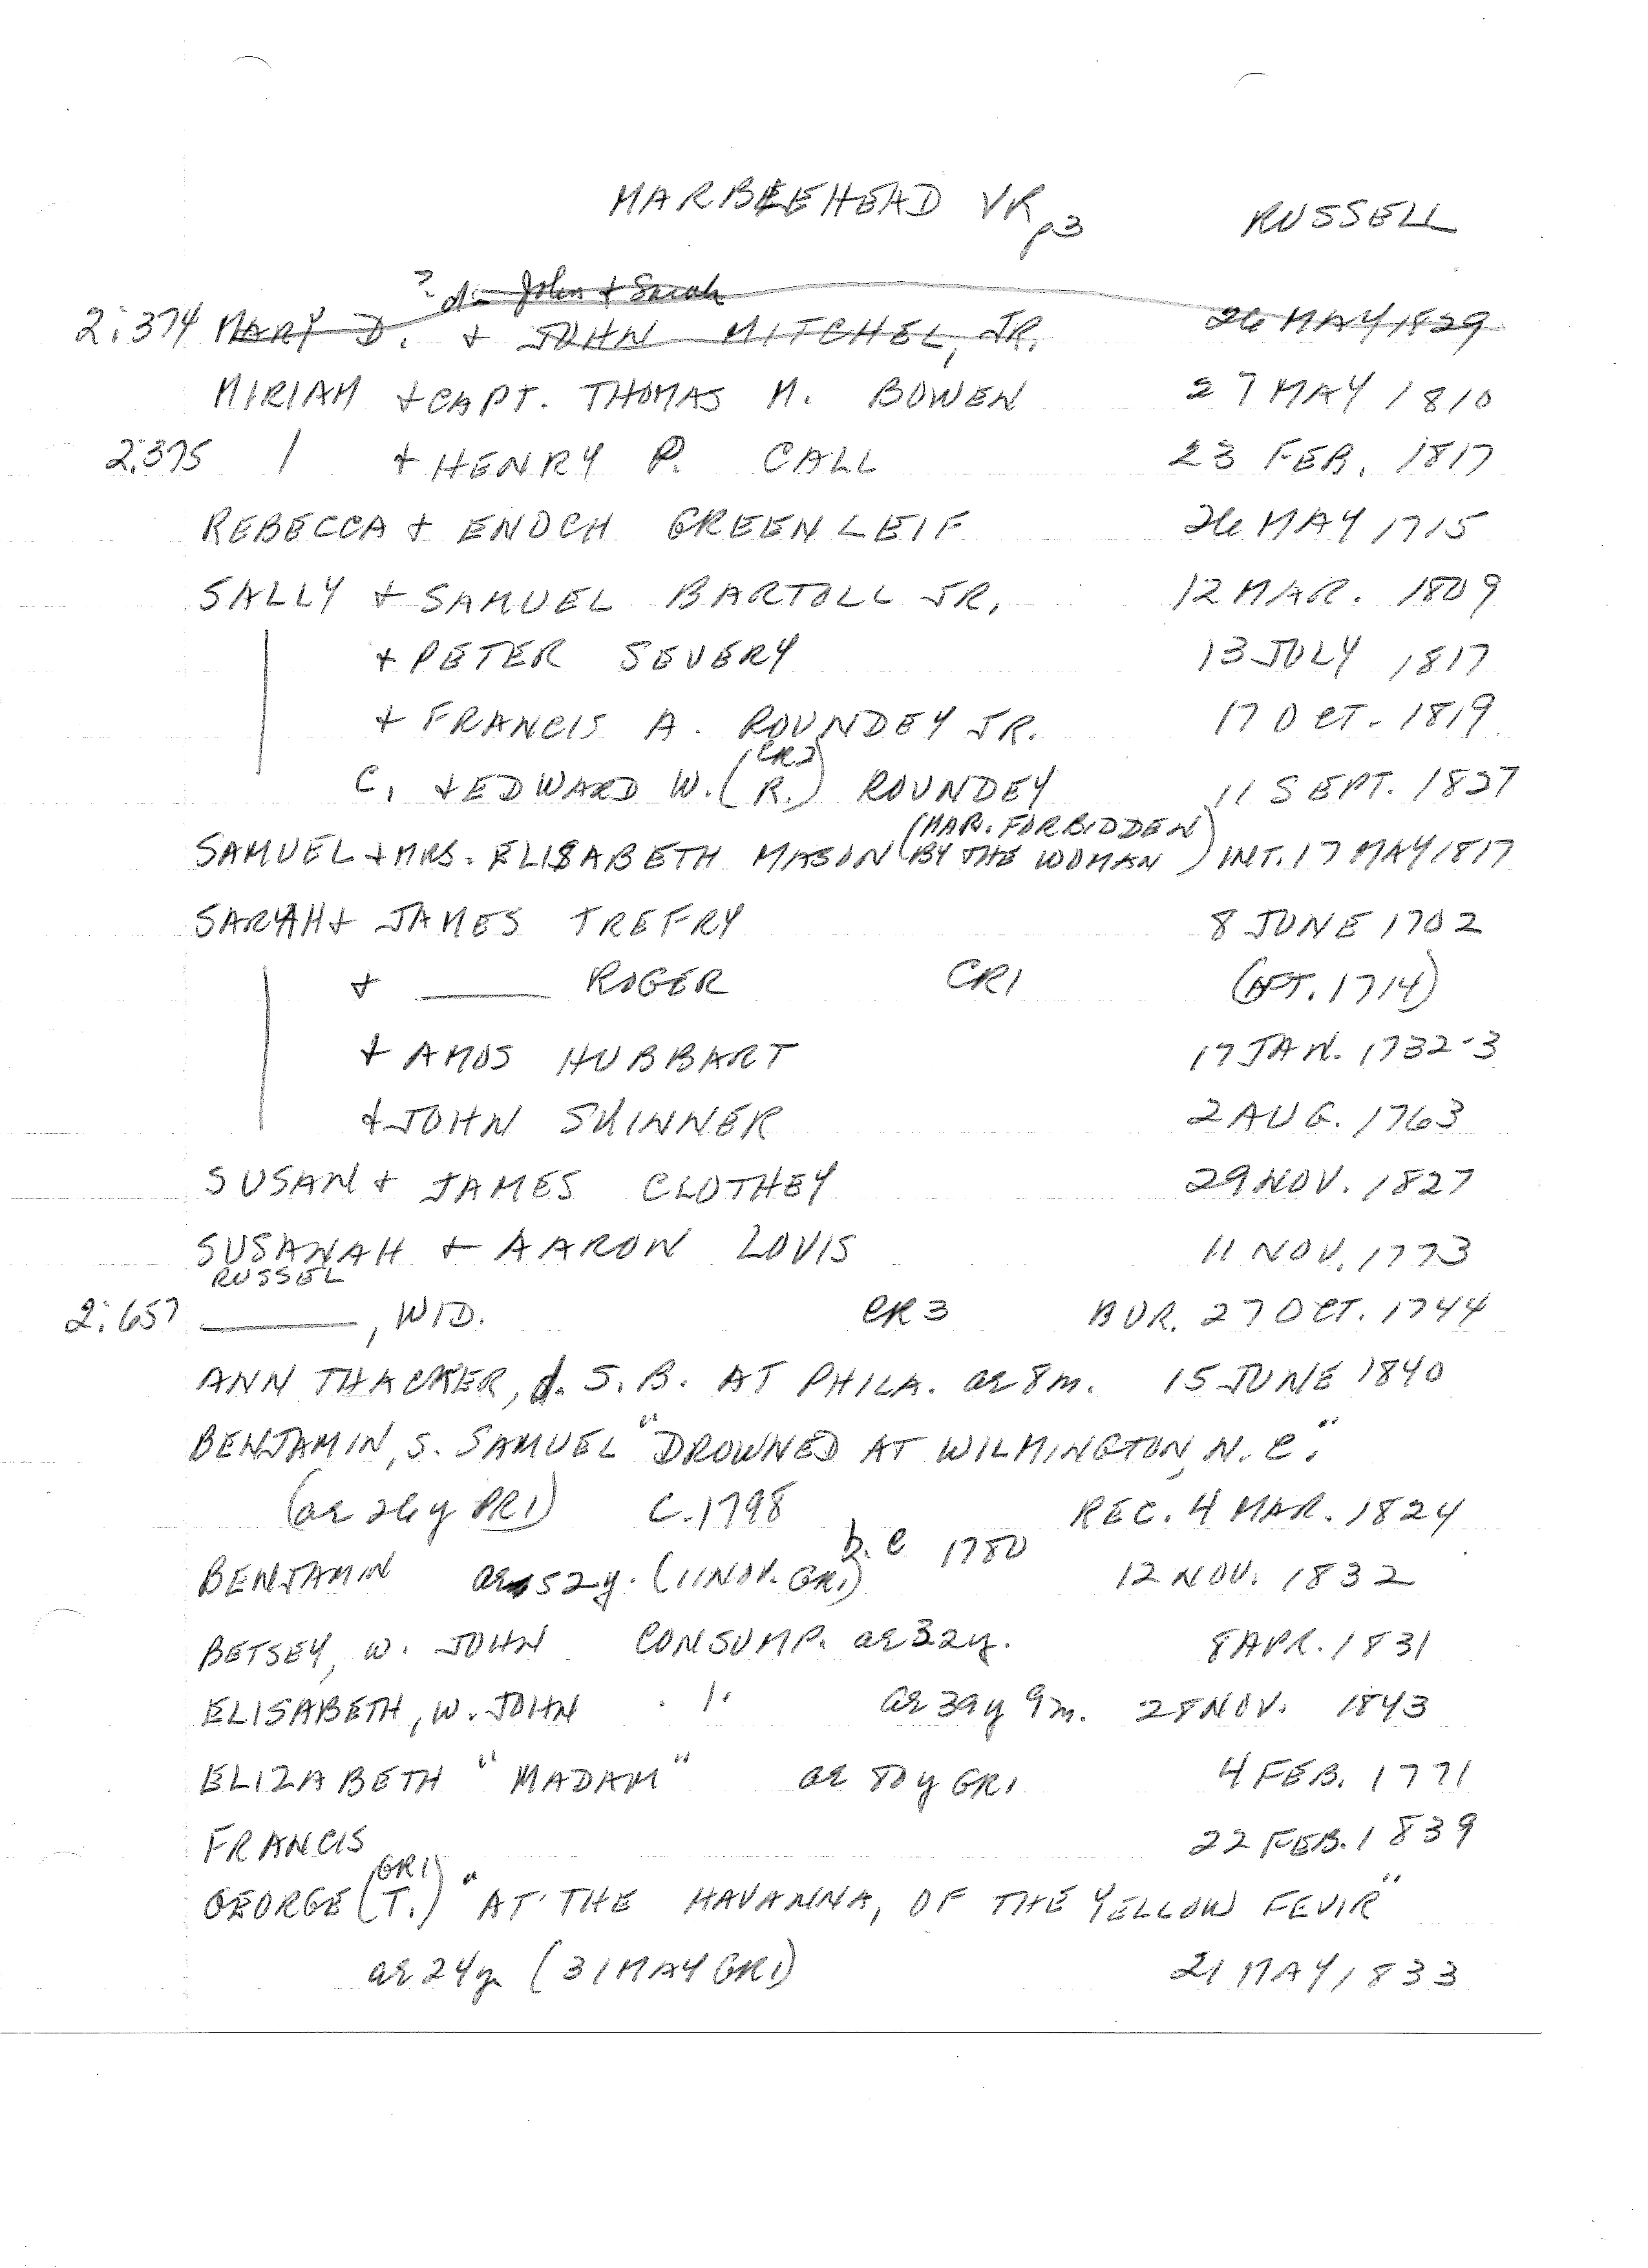 MARBLEHEAD VR p3 RUSSELL
? d. John + Sarah
2:374 MARY D. + JOHN MITCHEL, JR. 26 MAY 1829
MIRIAM + CAPT. THOMAS M. BOWEN 27 MAY 1810
2:375 | + HENRY P. CALL 23 FEB. 1817
REBECCA + ENOCH GREENLEIF 26 MAY 1715
SALLY + SAMUEL BARTOLL JR. 12 MAR. 1809
+ PETER SEVERY 13 JULY 1817
+ FRANCIS A. ROUNDEY JR. 17 OCT. 1819
C. + EDWARD W. (R. CR2) ROUNDEY 11 SEPT. 1827
SAMUEL + MRS. ELISABETH MASON (MAR. FORBIDDEN BY THE WOMAN) INT. 17 MAY 1817
SARAH + JAMES TREFRY 8 JUNE 1702
+ ____ ROGER CR1 (AFT. 1714)
+ AMOS HUBBART 17 JAN. 1732-3
+ JOHN SKINNER 2 AUG. 1763
SUSAN + JAMES CLOTHEY 29 NOV. 1827
SUSANAH + AARON LOVIS 11 NOV. 1773
RUSSEL
2:657 ____, WID. CR3 BUR. 27 OCT. 1744
ANN THACKER, d. S. B. AT PHILA. ae 8m. 15 JUNE 1840
BENJAMIN, S. SAMUEL "DROWNED AT WILMINGTON, N. C."
(ae 26y PR1) C. 1798 REC. 4 MAR. 1824
BENJAMIN ae 52y. (11 NOV. GR1) b. c 1780 12 NOV. 1832
BETSEY, W. JOHN CONSUMP. ae 32y. 8 APR. 1831
ELISABETH, W. JOHN " ae 39y 9m. 28 NOV. 1843
ELIZABETH "MADAM" ae 80y GR1 4 FEB. 1771
FRANCIS 22 FEB. 1839
GEORGE (T. GR1) "AT THE HAVANNA, OF THE YELLOW FEVIR"
ae 24y (31 MAY GR1) 21 MAY 1833